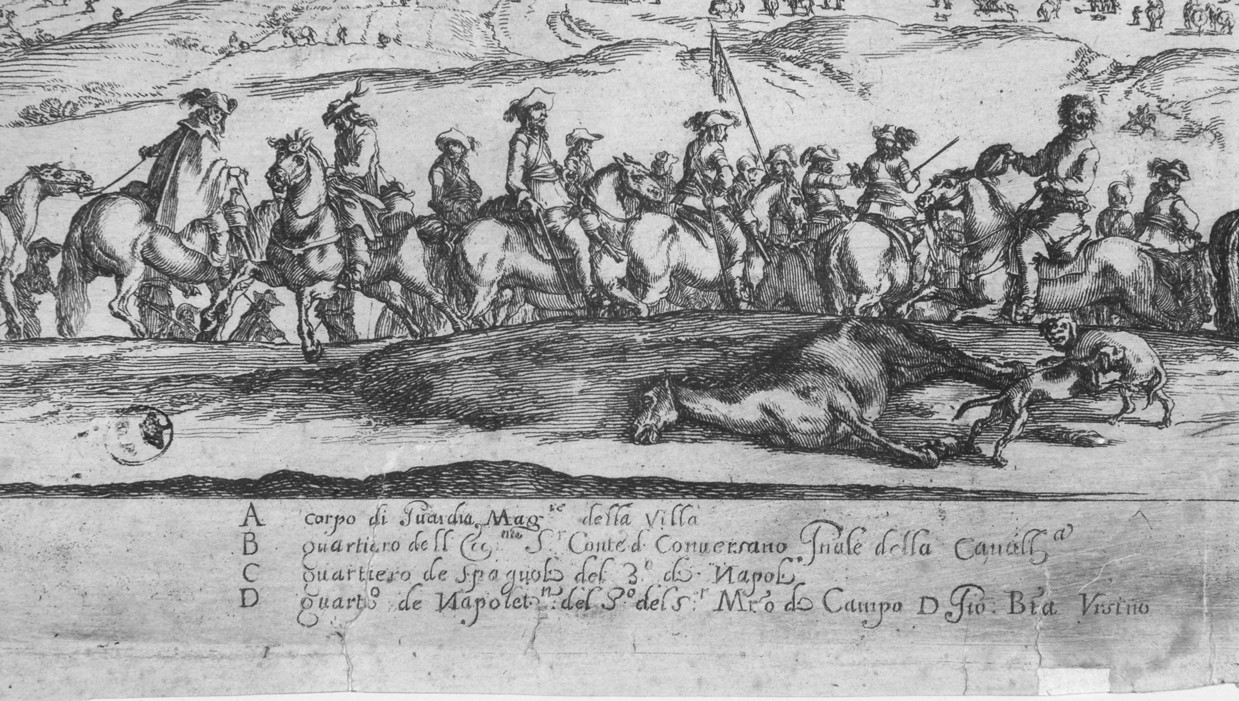 A corpo di Guardia Mag.re della Villa
B quartiero dell Ecc.mo S.r Conte d Conversano Gnale della Cauall.a
C quartiero de Spagnoli del 3.o di Napoli
D quart.o de Napolet.ni del 3.o del S.r Mr.o de Campo D Gio: Bta Vrsino